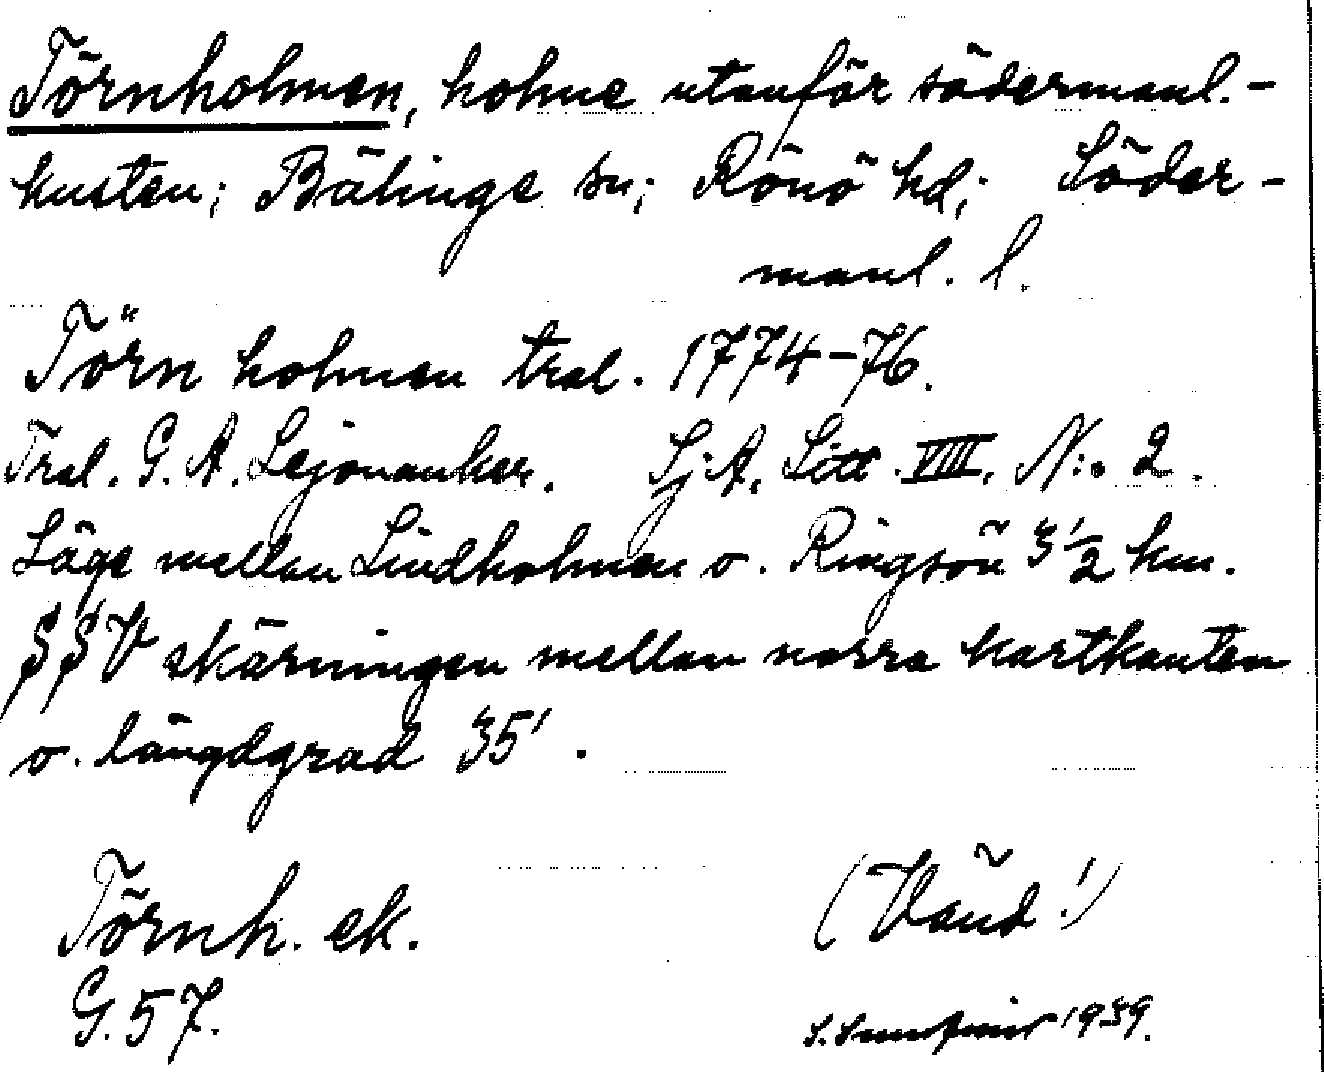 Törnholmen, holme utanför södermanl.-
kusten; Bälinge sn; Rönö hd; Söder-
manl. l.
Törn holmen tral. 1774-76.
Tral. G. A. Lejonanker. Sj. A. Litt. VIIII. N:o 2.
Läge mellan Lindholmen o. Ringsön 3 1/2 km.
SSV skärningen mellan norra kartkanten
o. längdgrad 35'.
Törnh. ek. (Vänd!)
G. 57. 1939.